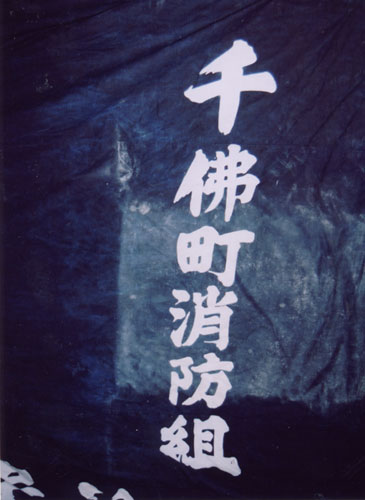 千佛町消防組